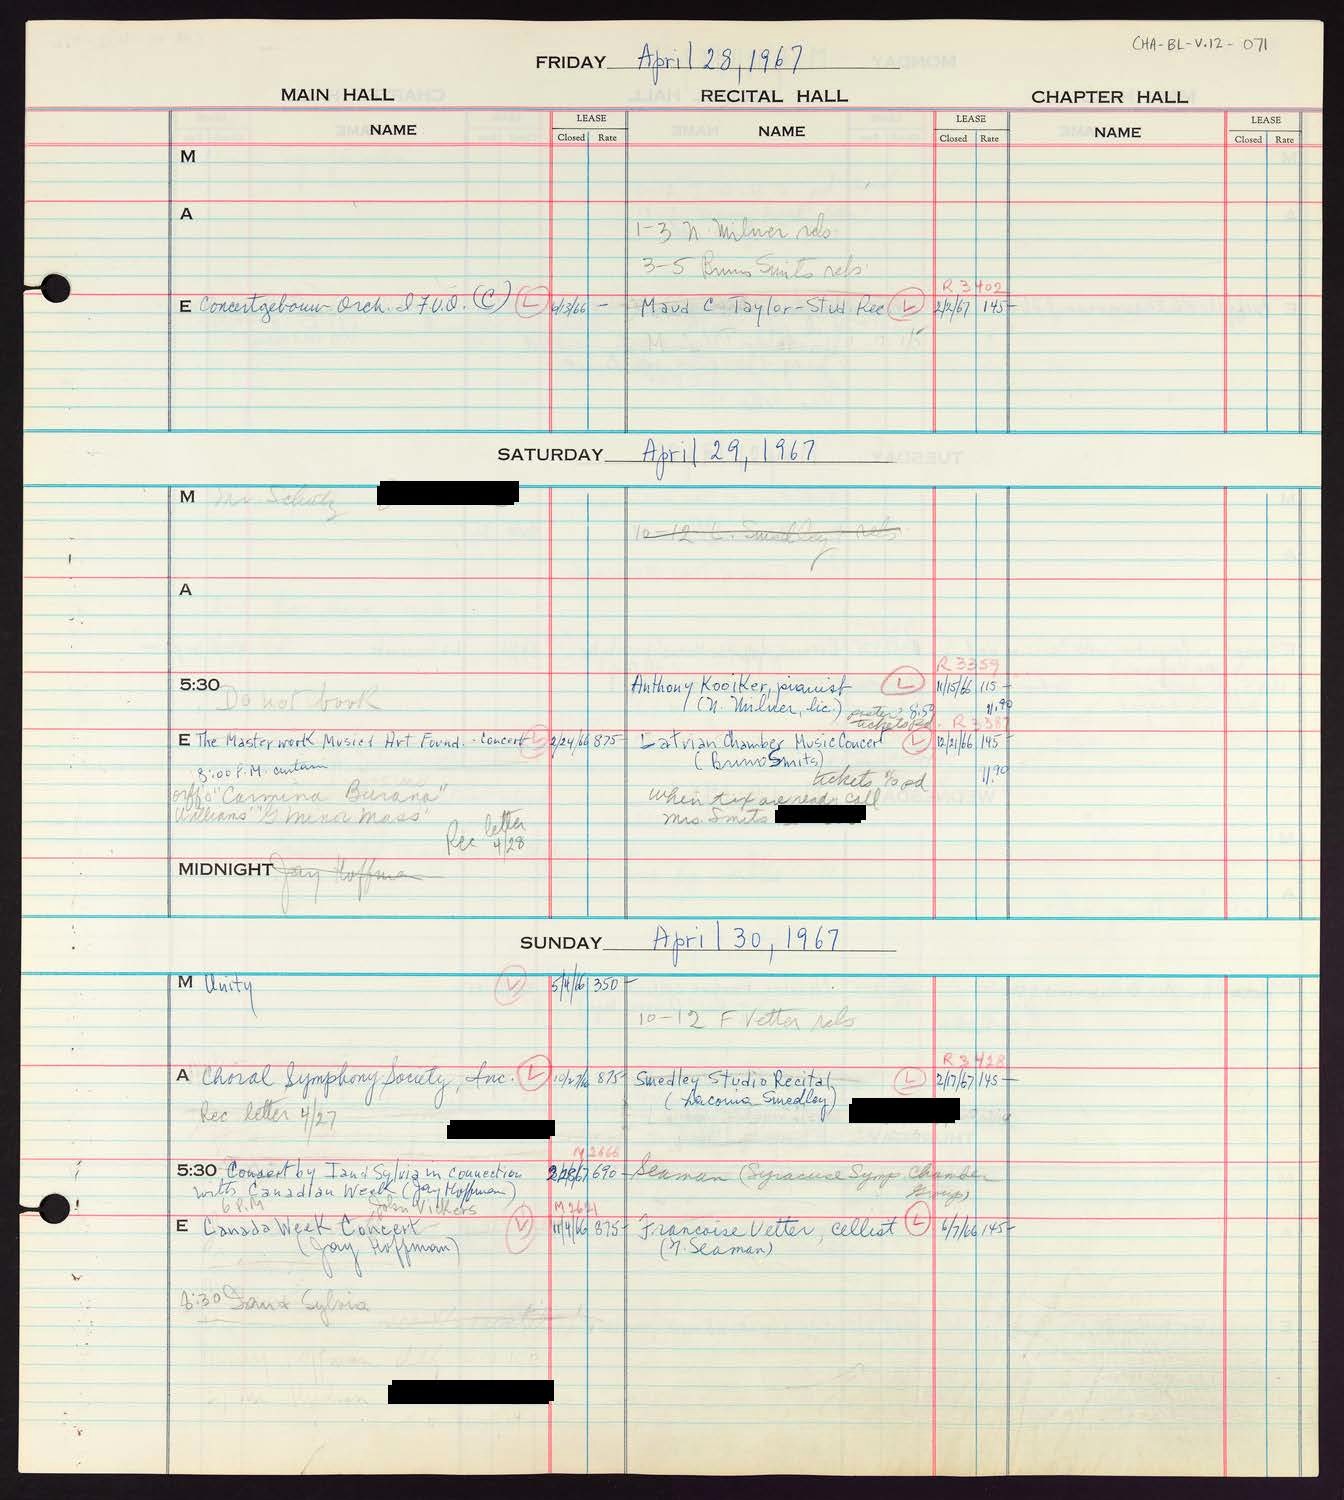 CHA-BL-V.12-071
FRIDAY April 28, 1967
MAIN HALL RECITAL HALL CHAPTER HALL
NAME LEASE NAME LEASE NAME LEASE
Closed Rate Closed Rate Closed Rate
M
A
1-3 N. Milner rels
3-5 Bruno Smits rels
R 3402
E Concertgebouw Orch. I.F.V.O. (C) L 6/3/66 - Maud C Taylor-Stud Rec L 2/2/67 145-
SATURDAY April 29, 1967
M Mr Scholz
10-12 L. Smedley rels
A
R 3359
5:30 Do not book Anthony Kooiker, pianist L 11/15/66 115-
(N. Milner, lic.) 11.90
tickets pd. R 3387
E The Masterwork Music & Art Found. - Concert L 2/24/66 875- Latvian Chamber Music Concert L 12/21/66 145-
8:00 P.M. curtain (Bruno Smits)
tickets pd 11.90
Orff's "Carmina Burana" When tix are ready call
Williams' "G Minor Mass" Mrs. Smits
Rec letter 4/28
MIDNIGHT Jay Hoffman
SUNDAY April 30, 1967
M Unity L 5/4/66 350-
10-12 F Vetter rels
R 3428
A Choral Symphony Society, Inc. L 875- Smedley Studio Recital L 2/17/67 145-
(Laconia Smedley)
Rec letter 4/27
M 2666
5:30 Concert by Ian & Sylvia in connection 2/28/67 690- Seaman (Syracuse Symp. Chamber
with Canadian Week (Jay Hoffman) Group)
6 P.M John Vickers M 2621
E Canada Week Concert L 11/4/66 875- Francoise Vetter, cellist L 6/7/66 145-
(Jay Hoffman) (N. Seaman)
5:30 Ian & Sylvia